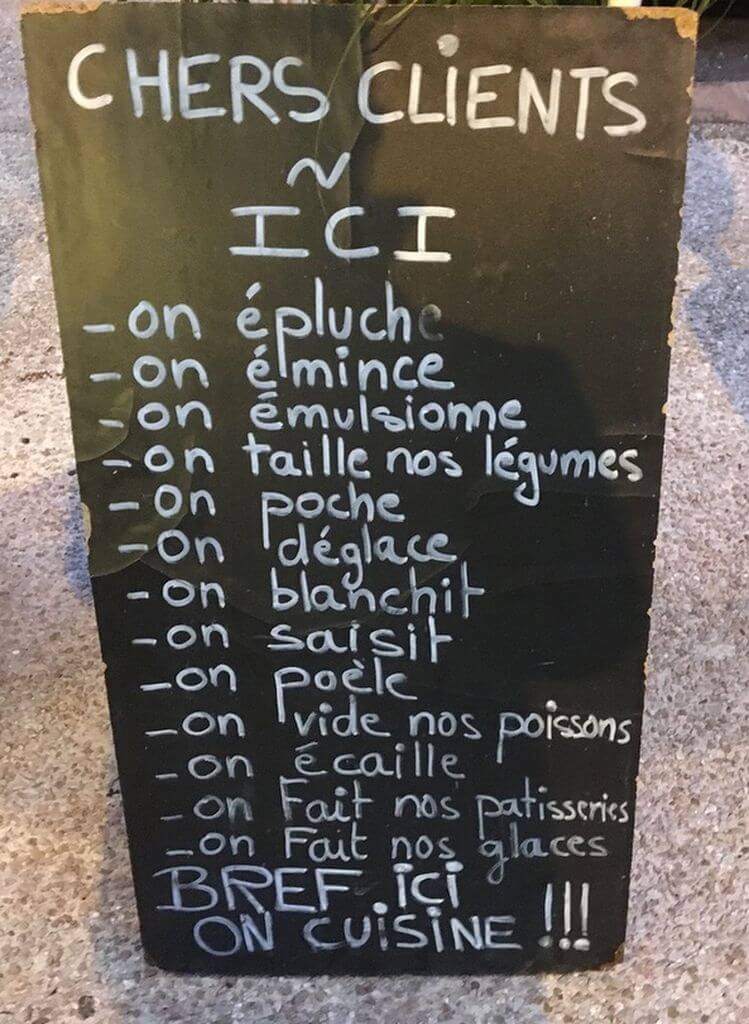 CHERS CLIENTS
~
ICI
-on épluche
-on émince
-on émulsionne
-on taille nos légumes
-on poche
-on déglace
-on blanchit
-on saisit
-on poèle
-on vide nos poissons
-on écaille
-on Fait nos patisseries
-on Fait nos glaces
BREF ici
ON CUISINE !!!